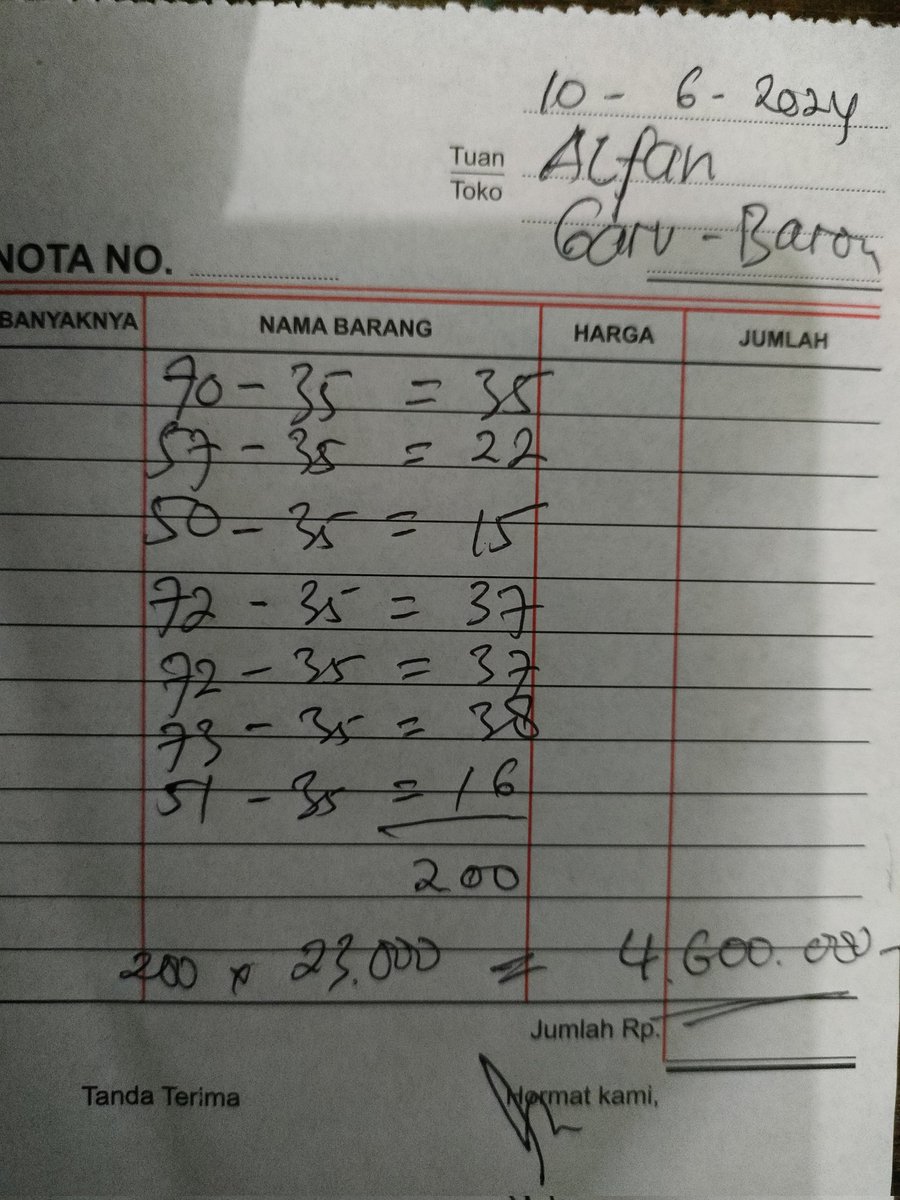 10 - 6 - 2024
Tuan Alfan
Toko
Garu - Baron
NOTA NO.
BANYAKNYA NAMA BARANG HARGA JUMLAH
70 - 35 = 35
57 - 35 = 22
50 - 35 = 15
72 - 35 = 37
72 - 35 = 37
73 - 35 = 38
51 - 35 = 16
200
200 x 23.000 = 4.600.000-
Jumlah Rp.
Tanda Terima Hormat kami,